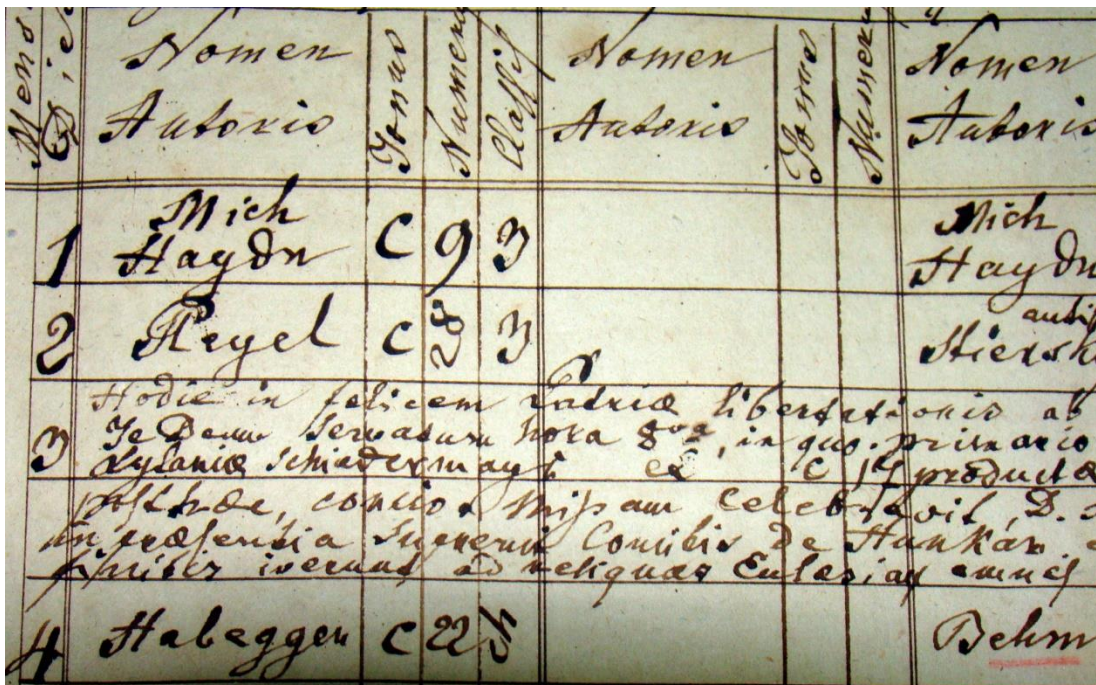 Mens Die
Nomen Autoris Tonus Numerus Classis Nomen Autoris Tonus Numer Nomen Autoris
1 Mich Haydn C 9 3 Mich Haydn
2 Pleyel C 28 3
Hodie in felicem Patriæ libertationis ab
3 Te Deum Servatum hora 8va, in quo primario
Lytaniæ Schiedermayr ex C 17 productæ
concio Missam celebravit, D.
in præsentia Comitis de Hunkár
iverunt ad reliquas Eclesias omnes
4 Habeggen C 22 Behm